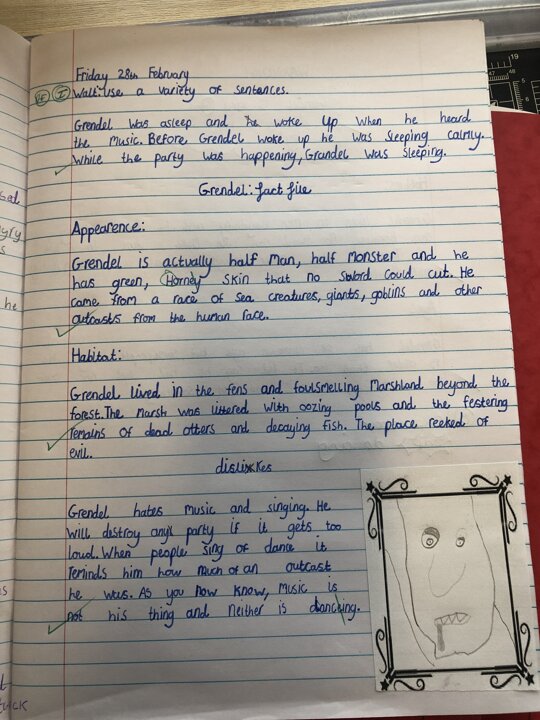 Friday 28th February
Walt: use a variety of sentences.
Grendel was asleep and he woke up when he heard
the music. Before Grendel woke up he was sleeping calmly.
While the party was happening, Grandel was sleeping.
Grendel: fact file
Appearence:
Grendel is actually half man, half monster and he
has green, Horney skin that no sword could cut. He
came from a race of sea creatures, giants, goblins and other
outcasts from the human race.
Habitat:
Grendel lived in the fens and foulsmelling marshland beyond the
forest. The marsh was littered with oozing pools and the festering
remains of dead otters and decaying fish. The place reeked of
evil.
dislikes
Grendel hates music and singing. He
will destroy any party if it gets too
loud. When people sing or dance it
reminds him how much of an outcast
he was. As you now know, music is
not his thing and neither is dancing.